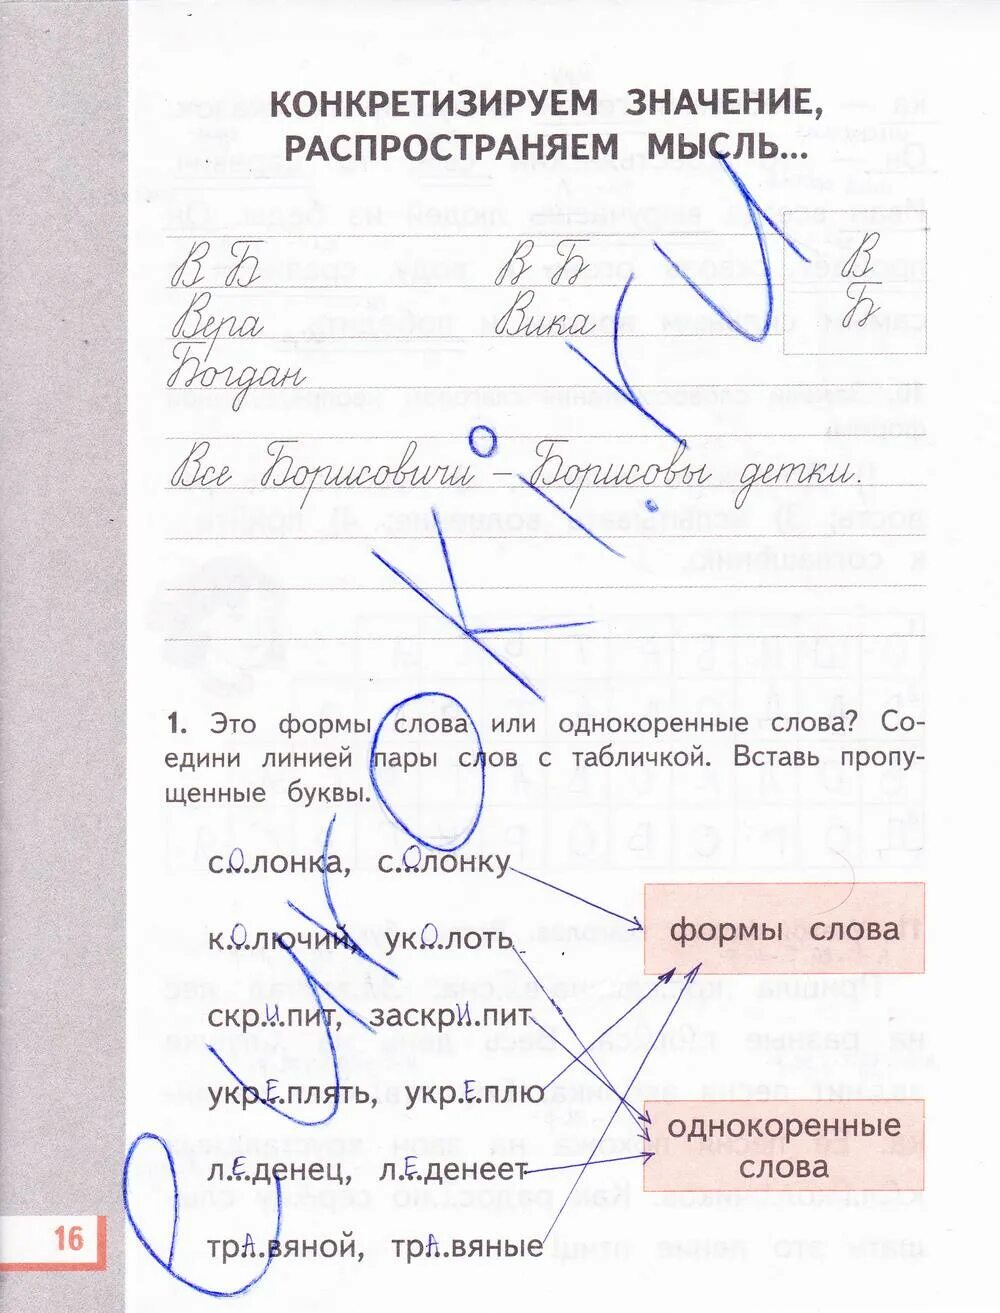 КОНКРЕТИЗИРУЕМ ЗНАЧЕНИЕ,
РАСПРОСТРАНЯЕМ МЫСЛЬ...
В Б В Б В
Вера Вика Б
Богдан
Все Борисовичи – Борисовы детки.
1. Это формы слова или однокоренные слова? Со-
едини линией пары слов с табличкой. Вставь пропу-
щенные буквы.
с.О.лонка, с.О.лонку
формы слова
к.О.лючий, ук.О.лоть
скр.И.пит, заскр.И.пит
укр.Е.плять, укр.Е.плю
однокоренные
слова
л.Е.денец, л.Е.денеет
тр.А.вяной, тр.А.вяные
16